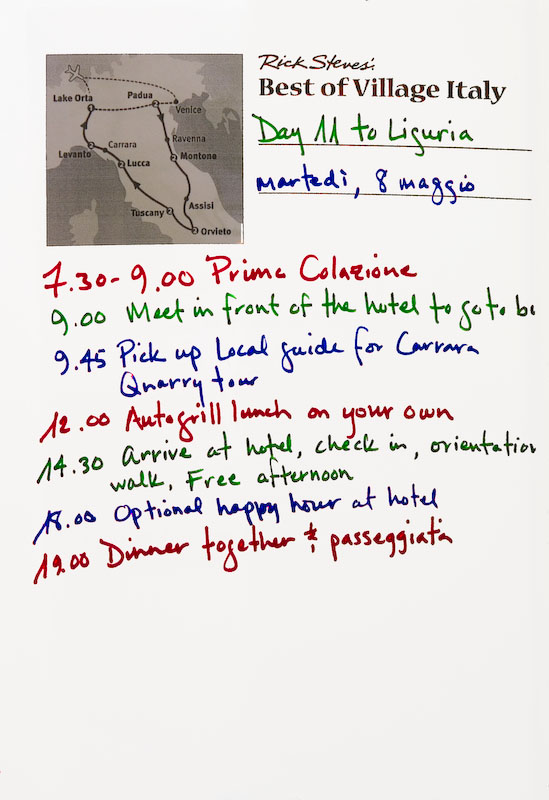 Rick Steves':
Best of Village Italy
Day 11 to Liguria
martedì, 8 maggio
Lake Orta
Padua
Venice
Ravenna
Levanto
Carrara
Lucca
Montone
Tuscany
Assisi
Orvieto
7.30-9.00 Prima Colazione
9.00 Meet in front of the hotel to go to bu
9.45 Pick up Local guide for Carrara
Quarry tour
12.00 Autogrill lunch on your own
14.30 Arrive at hotel, check in, orientation
walk, Free afternoon
18.00 Optional happy hour at hotel
19.00 Dinner together & passeggiata